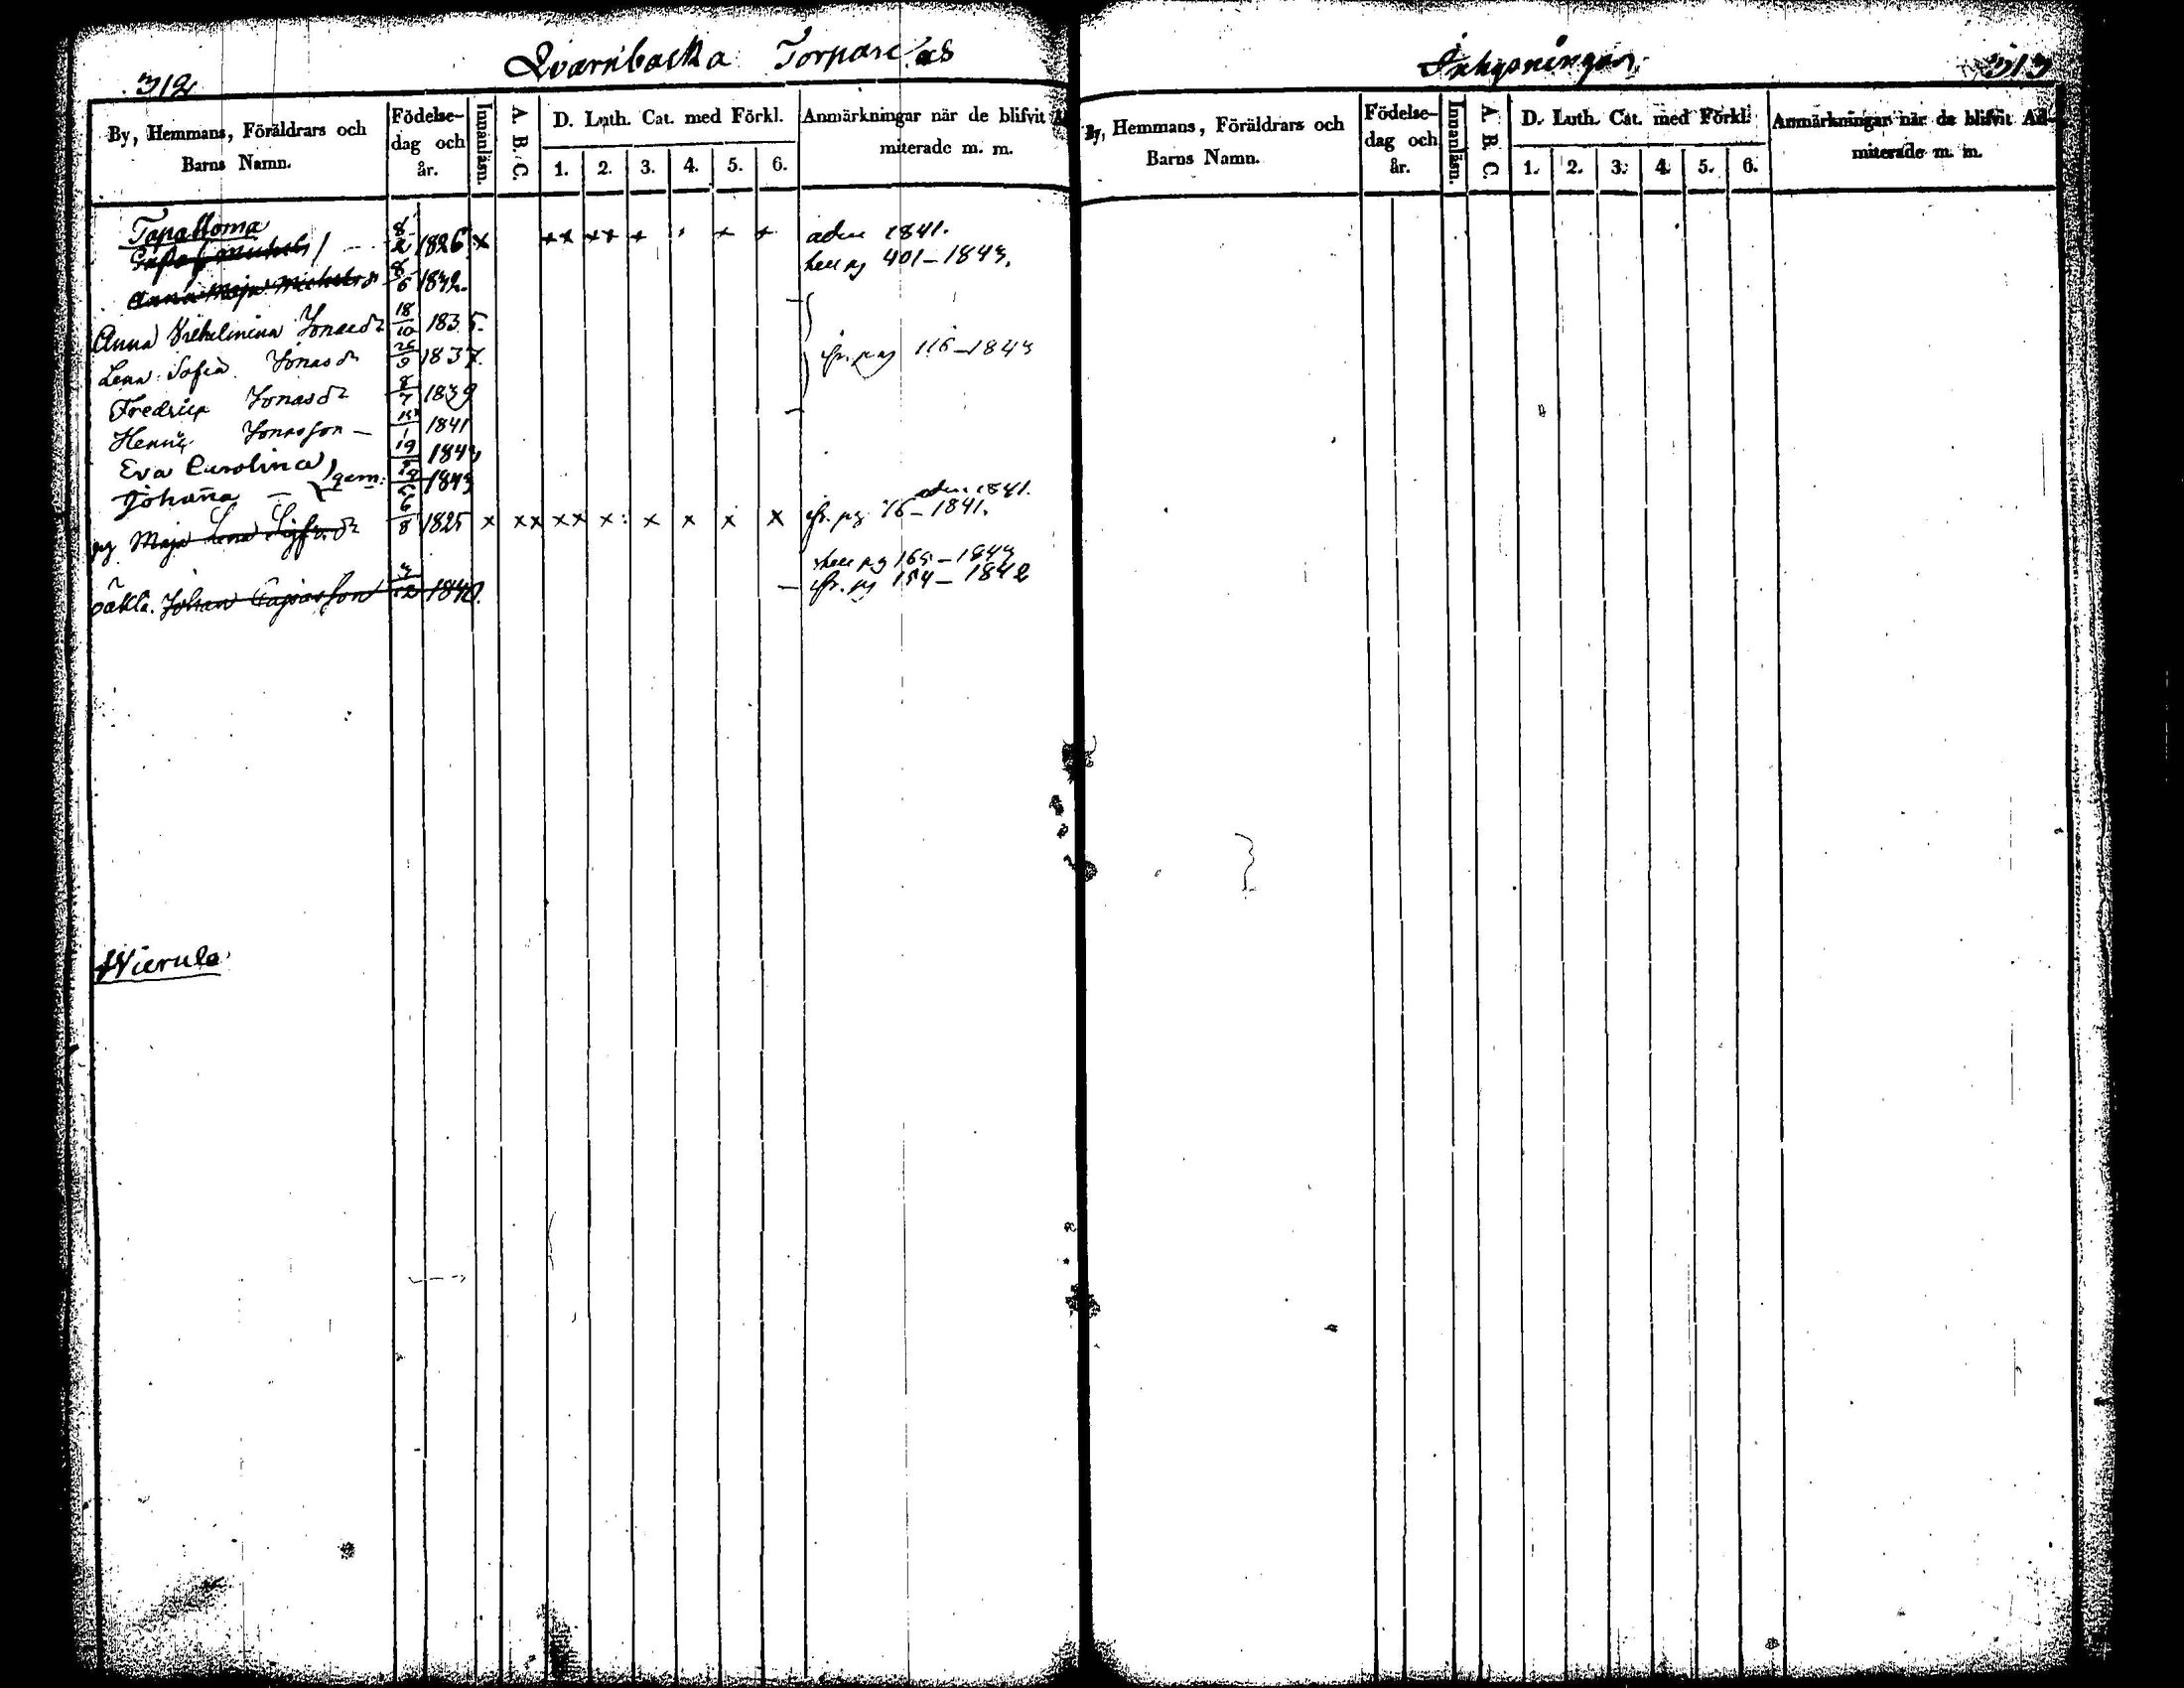 312
Qvarnbacka Torpare
By, Hemmans, Föräldrars och Barns Namn.
Födelse-dag och år.
Innanläsn.
A B C
D. Luth. Cat. med Förkl.
1. 2. 3. 4. 5. 6.
Anmärkningar när de blifvit
miterade m. m.
Tapalloma
Gustaf Michels 8/2 1826 x xx xx x x x adm 1841.
pg 401-1843.
Anna Maja Michelsdr 8/6 1832
Anna Vilhelmina Jonasdr 18/10 1835.
Lena Sofia Jonasdr 26/9 1837. fr. pag 116-1843
Fredrica Jonasdr 8/7 1839
Henric Jonasson - 1841
Eva Carolina 19 1843
Johanna - 1843
adm. 1841.
pg Maja Lena Sigfr.dr 6/8 1825 x xx xx x: x x x x fr. pg 76-1841.
1843
Johan 12 1840. - fr. pg 154-1842
Wierula
Inhysningar
313
By, Hemmans, Föräldrars och Barns Namn.
Födelse-dag och år.
Innanläsn.
A B C.
D. Luth. Cat. med Förkl.
1. 2. 3. 4. 5. 6.
Anmärkningar när de blifvit Ad-
miterade m. m.